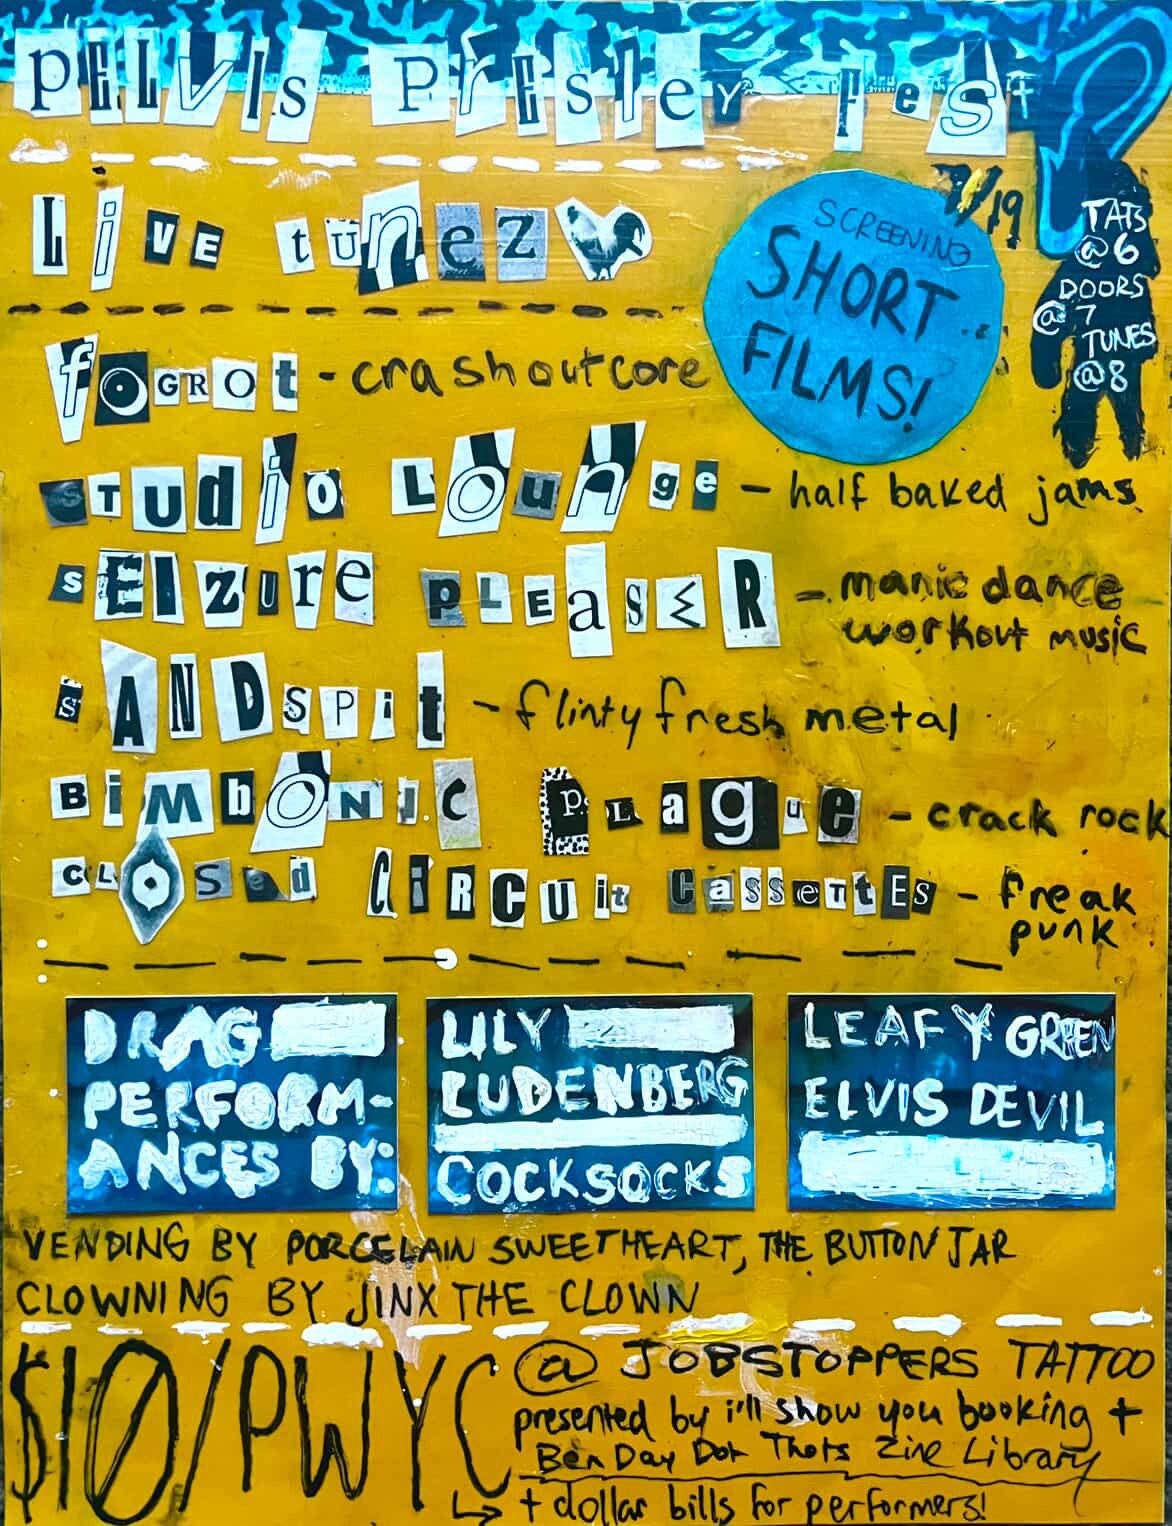 PELVIS PrEsley fest
7/19
LivE tunez
SCREENING
SHORT
FILMS!
TATS
@6
DOORS
@7
TUNES
@8
fOGROt - crashoutcore
STUdiO LOunge - half baked jams
sEIzure pLEasER - manic dance
workout music
sANDSPit - flinty fresh metal
BiMbONiC PLague - crack rock
CLOSed CiRCUit CassettEs - freak
punk
DRAG
PERFORM-
ANCES BY:
LILY
LUDENBERG
COCKSOCKS
LEAFY GREEN
ELVIS DEVIL
VENDING BY PORCELAIN SWEETHEART, THE BUTTON JAR
CLOWNING BY JINX THE CLOWN
$10/PWYC
@ JOBSTOPPERS TATTOO
presented by i'll show you booking +
Ben Day Dot Thots Zine Library
+ dollar bills for performers!